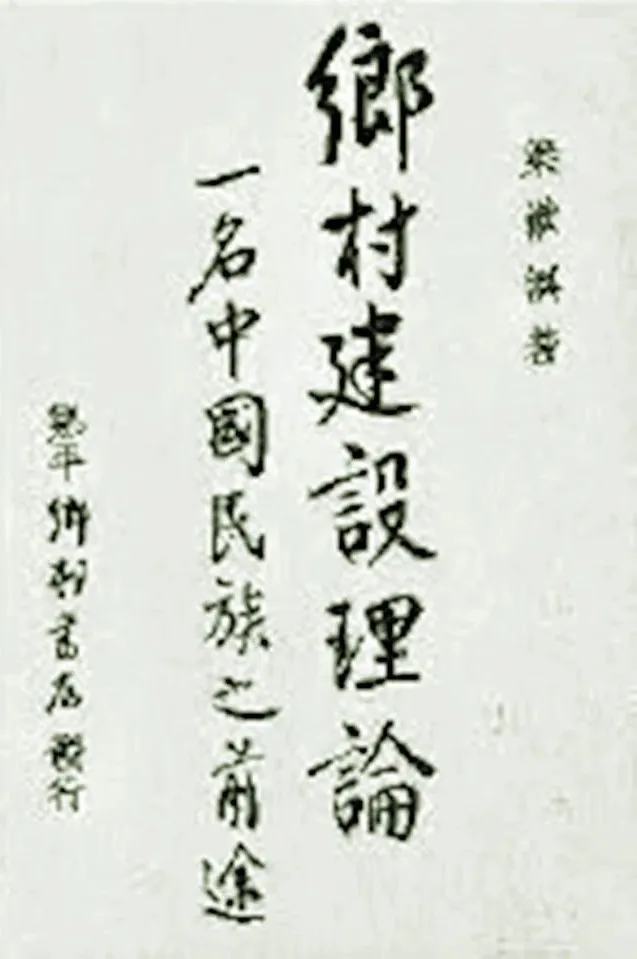 梁漱溟著
鄉村建設理論
一名中國民族之前途
鄒平鄉村書店發行